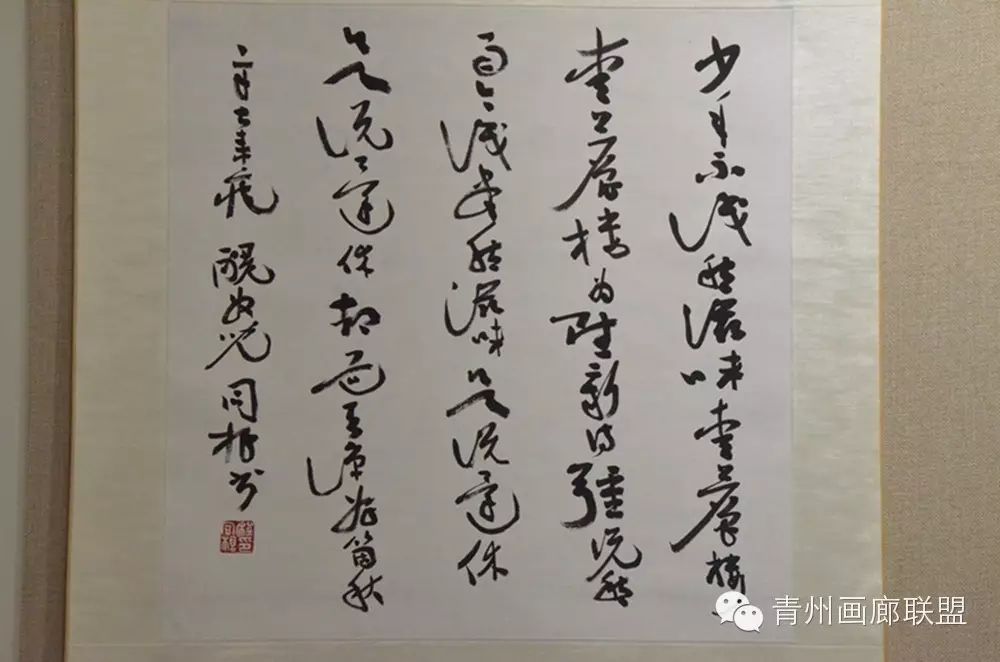 少年不识愁滋味爱上层楼
爱上层楼为赋新词强说愁
而今识尽愁滋味欲说还休
欲说还休却道天凉好个秋
辛弃疾 醜奴儿 同书
青州画廊联盟